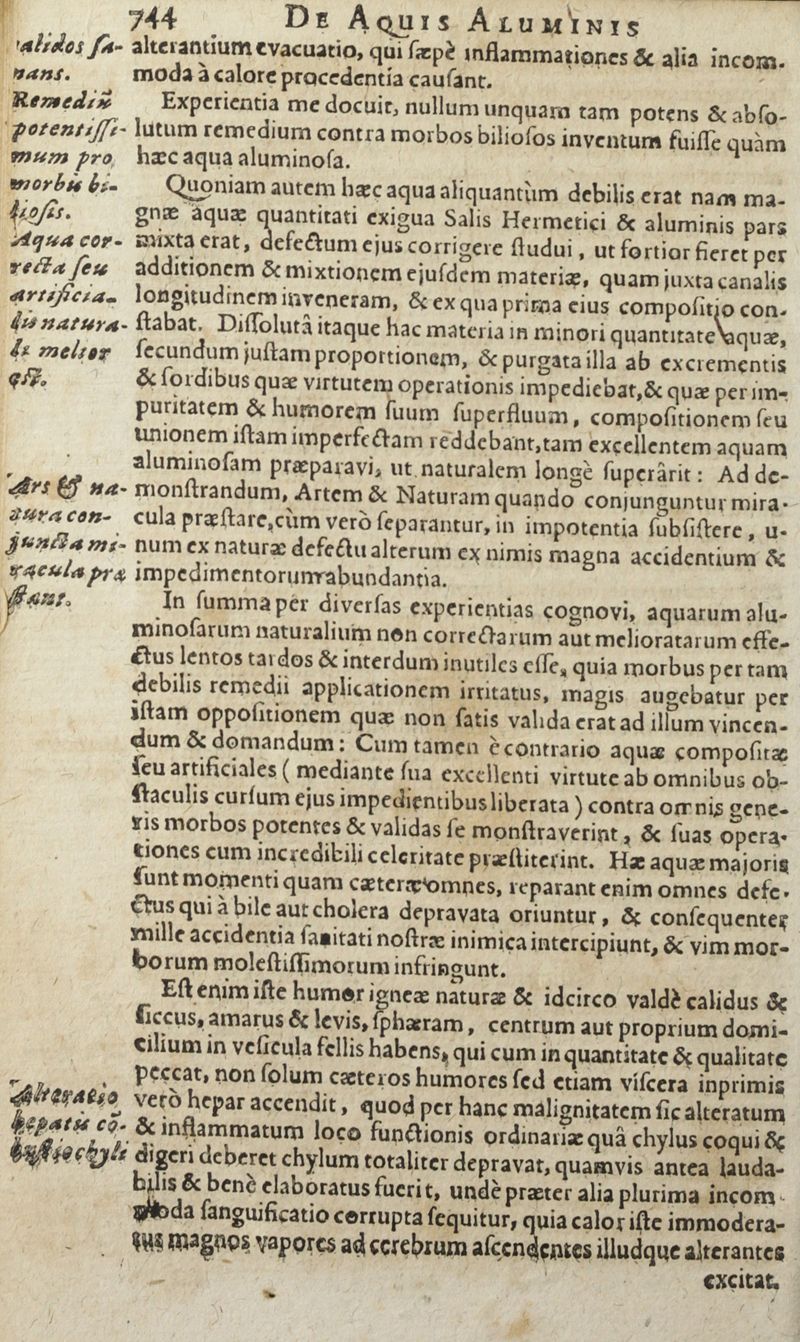 744 DE AQUIS ALUMINIS
alterantium evacuatio, qui sæpè inflammationes & alia incom-
moda à calore procedentia causant.
Experientia me docuit, nullum unquam tam potens & abso-
lutum remedium contra morbos biliosos inventum fuisse quàm
hæc aqua aluminosa.
Quoniam autem hæc aqua aliquantùm debilis erat nam ma-
gnæ aquæ quantitati exigua Salis Hermetici & aluminis pars
mixta erat, defectum ejus corrigere studui, ut fortior fieret per
additionem & mixtionem ejusdem materiæ, quam juxta canalis
longitudinem inveneram, & ex qua prima eius compositio con-
stabat. Dissolutâ itaque hac materia in minori quantitate aquæ,
secundum justam proportionem, & purgata illa ab excrementis
& sordibus quæ virtutem operationis impediebat, & quæ per im-
puritatem & humorem suum superfluum, compositionem seu
unionem istam imperfectam reddebant, tam excellentem aquam
aluminosam præparavi, ut naturalem longè superârit: Ad de-
monstrandum, Artem & Naturam quando conjunguntur mira-
cula præstare, cùm verò separantur, in impotentia subsistere, u-
num ex naturæ defectu alterum ex nimis magna accidentium &
impedimentorum abundantia.
In summa per diversas experientias cognovi, aquarum alu-
minosarum naturalium non correctarum aut melioratarum effe-
ctus lentos tardos & interdum inutiles esse, quia morbus per tam
debilis remedii applicationem irritatus, magis augebatur per
istam oppositionem quæ non satis valida erat ad illum vincen-
dum & domandum: Cum tamen è contrario aquæ compositæ
seu artificiales ( mediante sua excellenti virtute ab omnibus ob-
staculis cursum ejus impedientibus liberata ) contra omnis gene-
ris morbos potentes & validas se monstraverint, & suas opera-
tiones cum incredibili celeritate præstiterint. Hæ aquæ majoris
sunt momenti quam cæteræ omnes, reparant enim omnes defe-
ctus qui à bile aut cholera depravata oriuntur, & consequenter
mille accidentia sanitati nostræ inimica intercipiunt, & vim mor-
borum molestissimorum infringunt.
Est enim iste humor igneæ naturæ & idcirco valdè calidus &
siccus, amarus & levis, sphæram, centrum aut proprium domi-
cilium in vesicula fellis habens, qui cum in quantitate & qualitate
peccat, non solum cæteros humores sed etiam viscera inprimis
verò hepar accendit, quod per hanc malignitatem sic alteratum
& inflammatum loco functionis ordinariæ quâ chylus coqui &
digeri deberet chylum totaliter depravat, quamvis antea lauda-
bilis & benè elaboratus fuerit, undè præter alia plurima incom-
moda sanguificatio corrupta sequitur, quia calor iste immodera-
tus magnos vapores ad cerebrum ascendentes illudque alterantes
excitat.
alidos sa-
nans.
Remediũ
potentissi-
mum pro
morbis bi-
liosis.
Aqua cor-
recta seu
artificia-
lis natura-
li melior
est.
Ars & na-
tura con-
juncta mi-
racula præ
stant.
Alteratio
hepatis co-
chyli